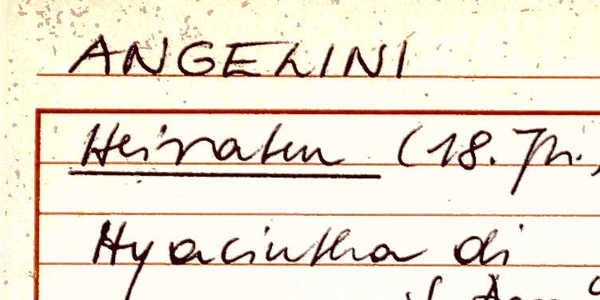 ANGELINI
Heiraten (18. Jh.,
Hyacintha di